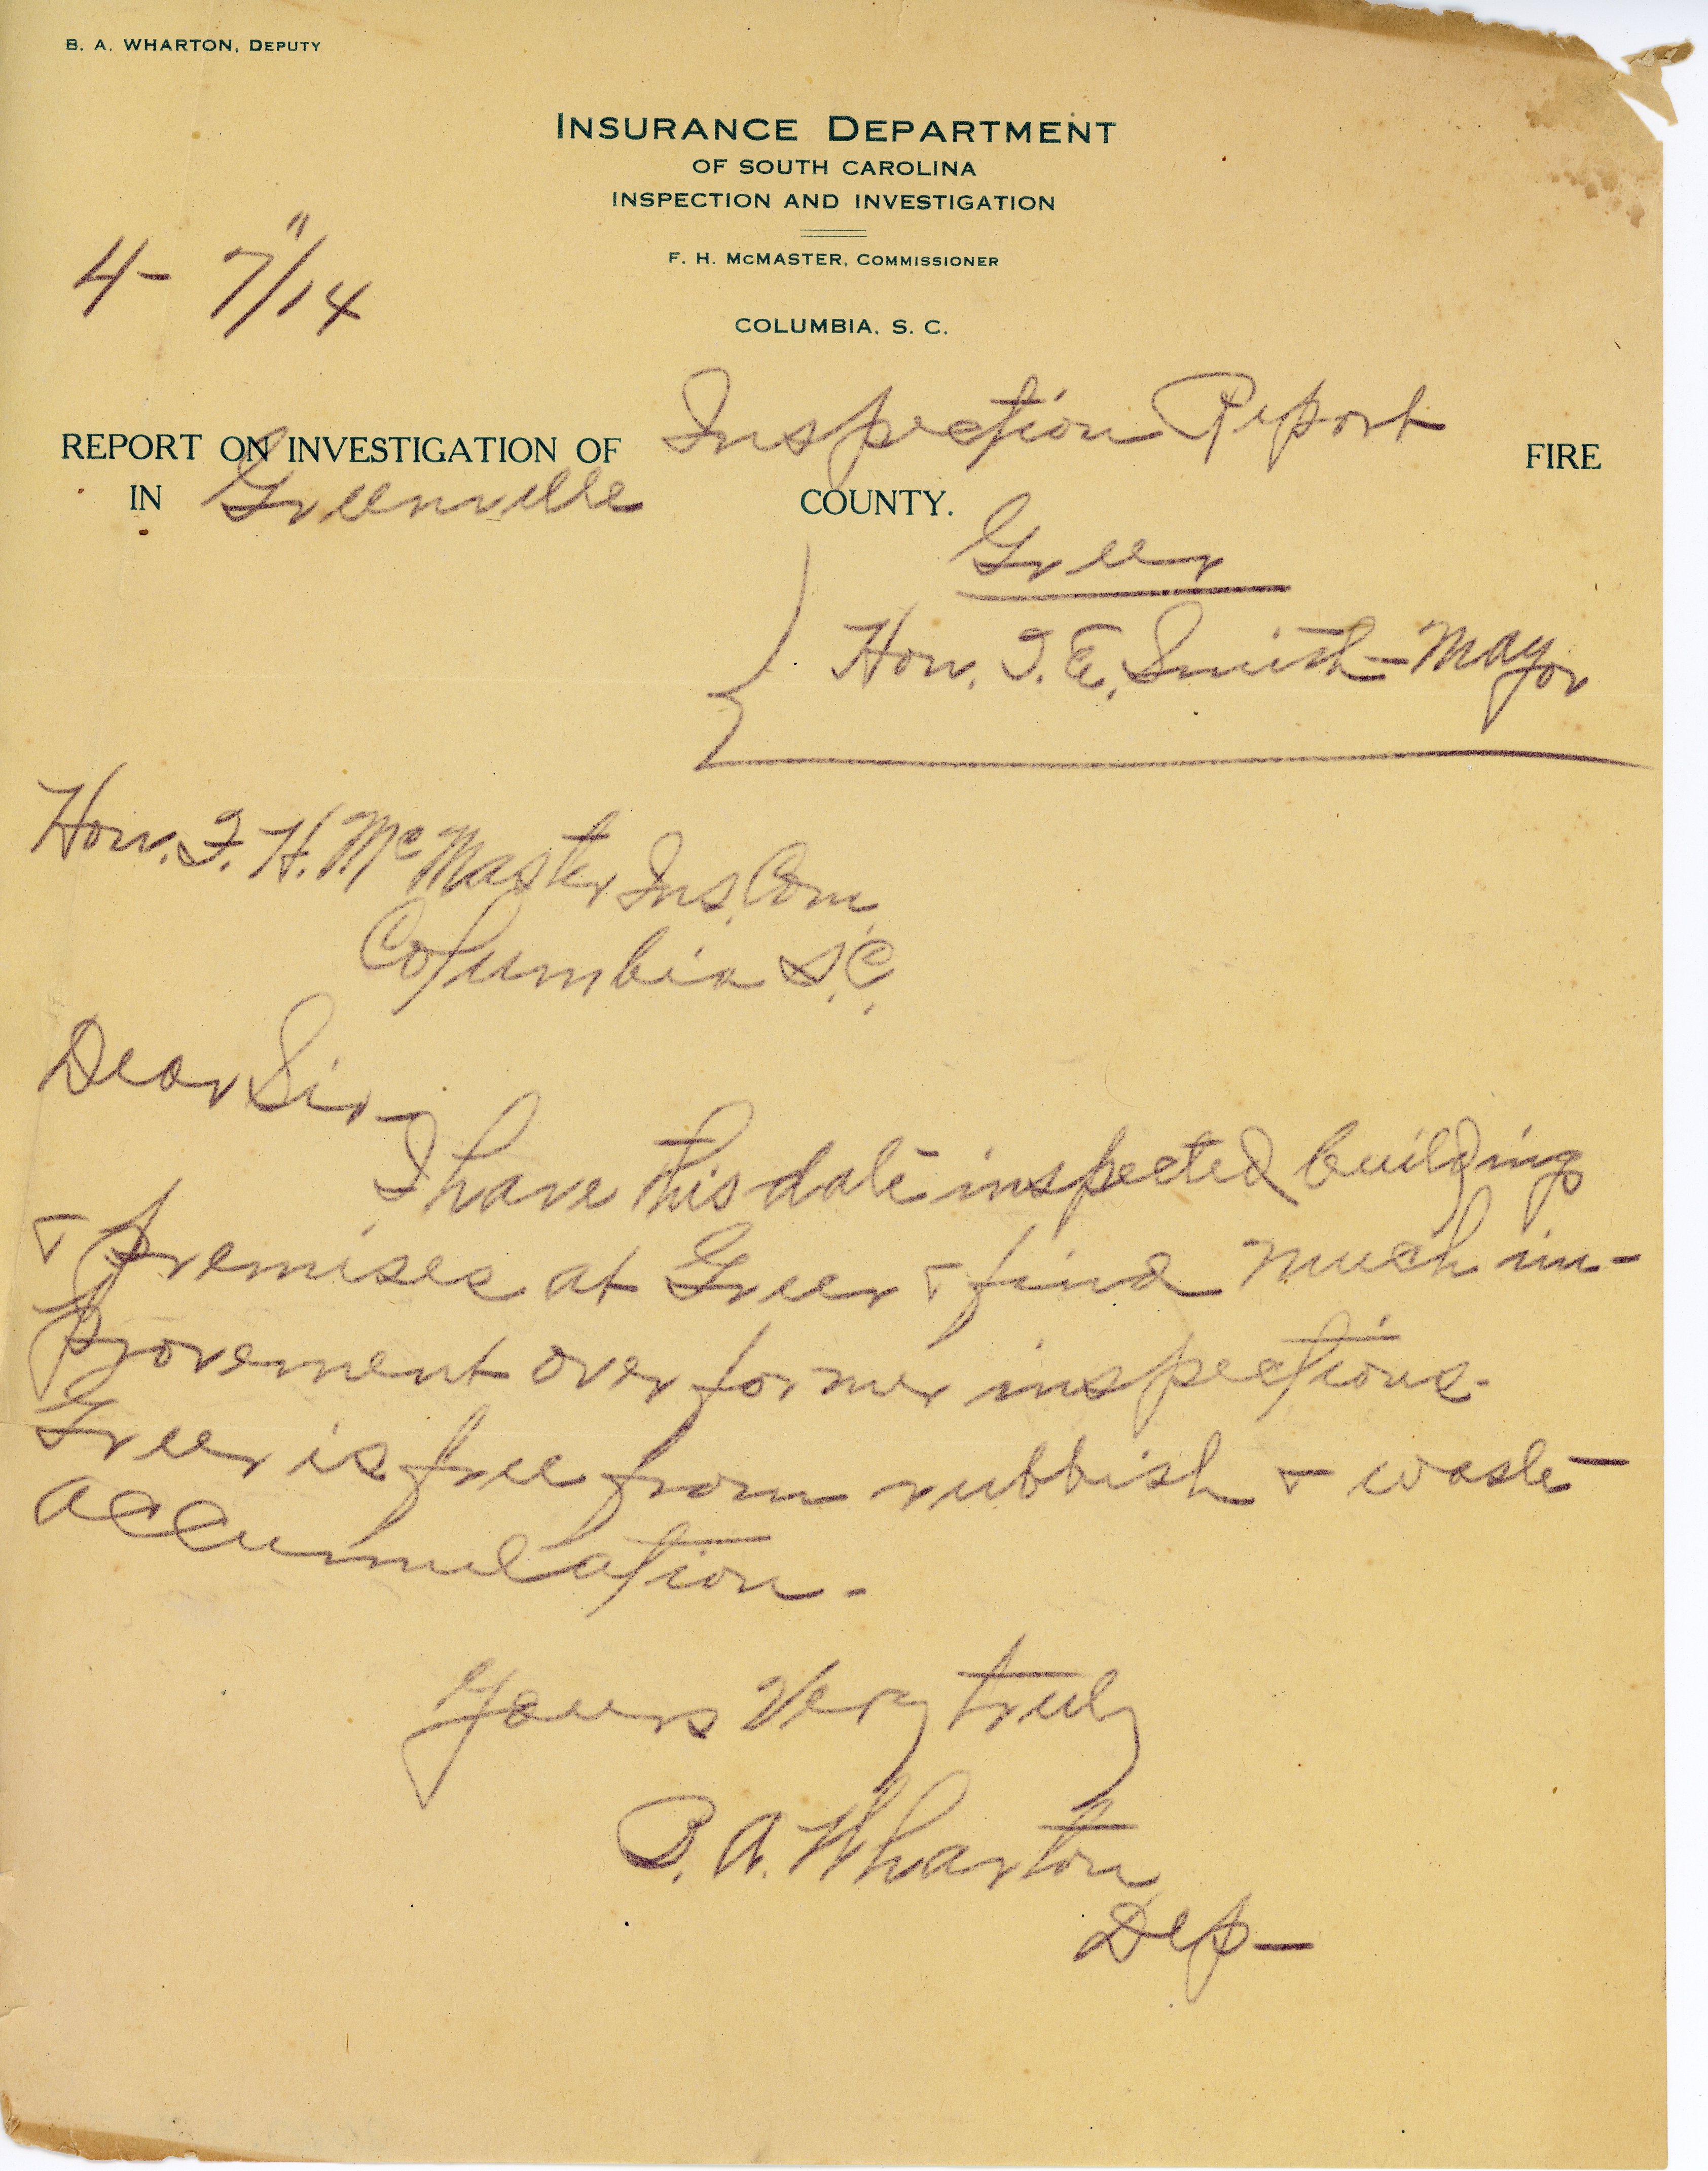 B. A. WHARTON, DEPUTY
INSURANCE DEPARTMENT
OF SOUTH CAROLINA
INSPECTION AND INVESTIGATION
F. H. McMASTER, COMMISSIONER
COLUMBIA, S. C.
4- 7"/14
REPORT ON INVESTIGATION OF Inspection Report FIRE
IN Greenville COUNTY.
Greer
Hon. T. E. Smith - Mayor
Hon. F. H. McMaster Ins. Com.
Columbia S.C.
Dear Sir -
I have this date inspected building
& premises at Greer & find much im-
provement over former inspections.
Greer is free from rubbish & waste
accumulation.
Yours Very truly
B. A. Wharton
Dep-